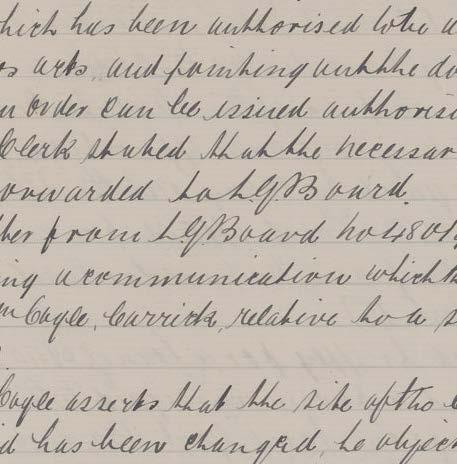 which has been authorised to be
arts, and pointing out the do
order can be issued authoris
Clerk stated that the necessar
forwarded to L.G.Board.
ter from L.G.Board no 4801
ing a communication which th
Coyle, Carrick, relative to a s
Coyle asserts that the site of the
d has been changed, he object